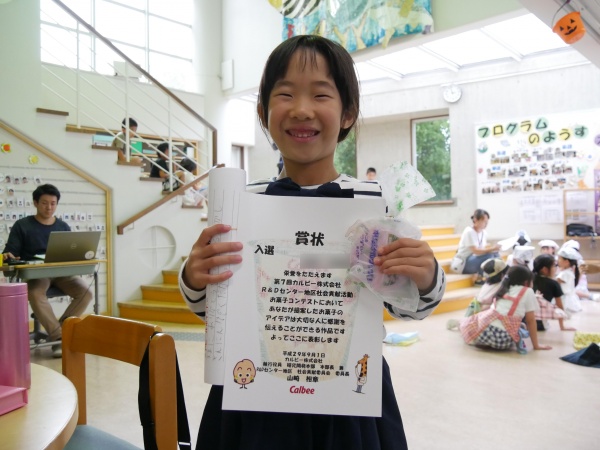 プログラム
のようす
賞状
入選
栄養をたたえます
第7回カルビー株式会社
R&Dセンター地区社会貢献活動
お菓子コンテストにおいて
あなたが提案したお菓子の
アイデアは大切な人に感謝を
伝えることができる作品です
よってここに表彰します
平成29年9月1日
カルビー株式会社
執行役員 研究開発本部 本部長 兼
R&Dセンター地区 社会貢献委員会 委員長
山崎 裕章
Calbee